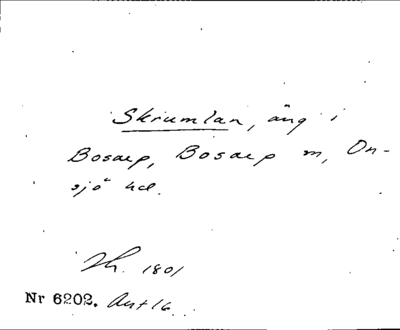 Skrumlan, äng i
Bosarp, Bosarp sn, On-
sjö hd.
1801
Nr 6202. Avt 16.